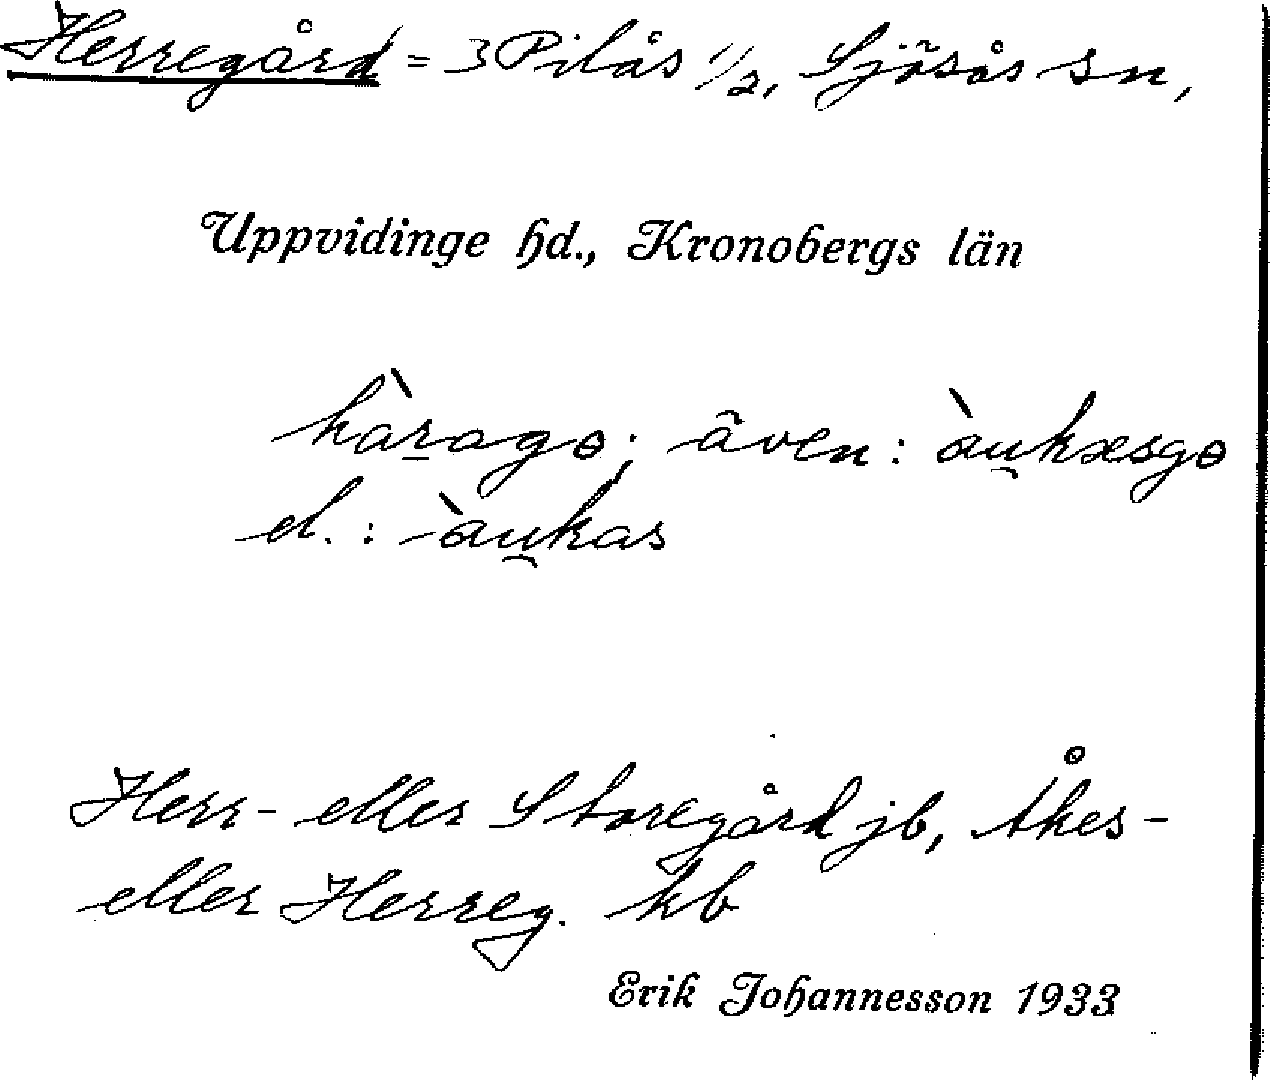 Herregård = 3 Pilås 1/2, Sjösås sn,
Uppvidinge hd., Kronobergs län
hàrago; även: àu̯kæsgo
el.: àu̯kas
Herr- eller Storegård jb, Åkes-
eller Herreg. kb
Erik Johannesson 1933